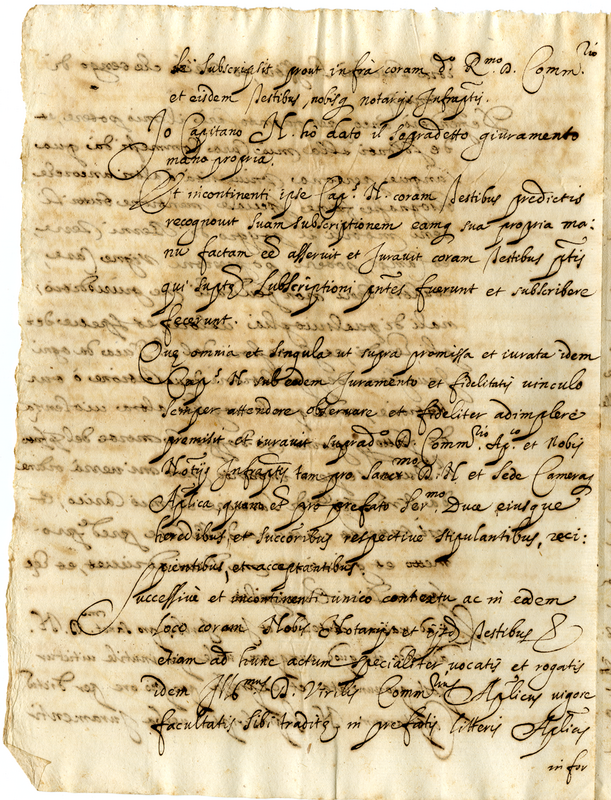 se subscripsit prout infra coram do Rmo D. Commrio
et eisdem Testibus, nobisq notarijs Infraptis.
Io Capitano N. hò dato il sopradetto giuramento
mano propria.
Et incontinenti ipse Caps N. coram Testibus predictis
recognovit suam subscriptionem eamq sua propria ma:
nu factam eē asseruit et Iuravit coram Testibus ptis
qui supta Subscriptioni pntes fuerunt et subscribere
fecerunt.
Que omnia et singula ut supra promissa et iurata idem
Caps N sub eodem Iuramento et fidelitatis vinculo
semper attendere observare et fideliter adimplere
promisit et iuravit suprado D. Commrio Apco et Nobis
Notijs Infraptis tam pro Sancmo D. N et Sede Camera
Aplica quam et pro prefato Sermo Duce eiusque
heredibus et succoribus respective stipulantibus, reci:
pientibus, et acceptantibus.
Successive et incontinenti unico contextu ac in eodem
loco coram Nobis Notarijs et Testibus
etiam ad hunc actum specialiter vocatis et rogatis
idem Illmus D. Virilis Commrius Aplicus vigore
facultatis sibi tradite in prefatis litteris Aplicis
in for